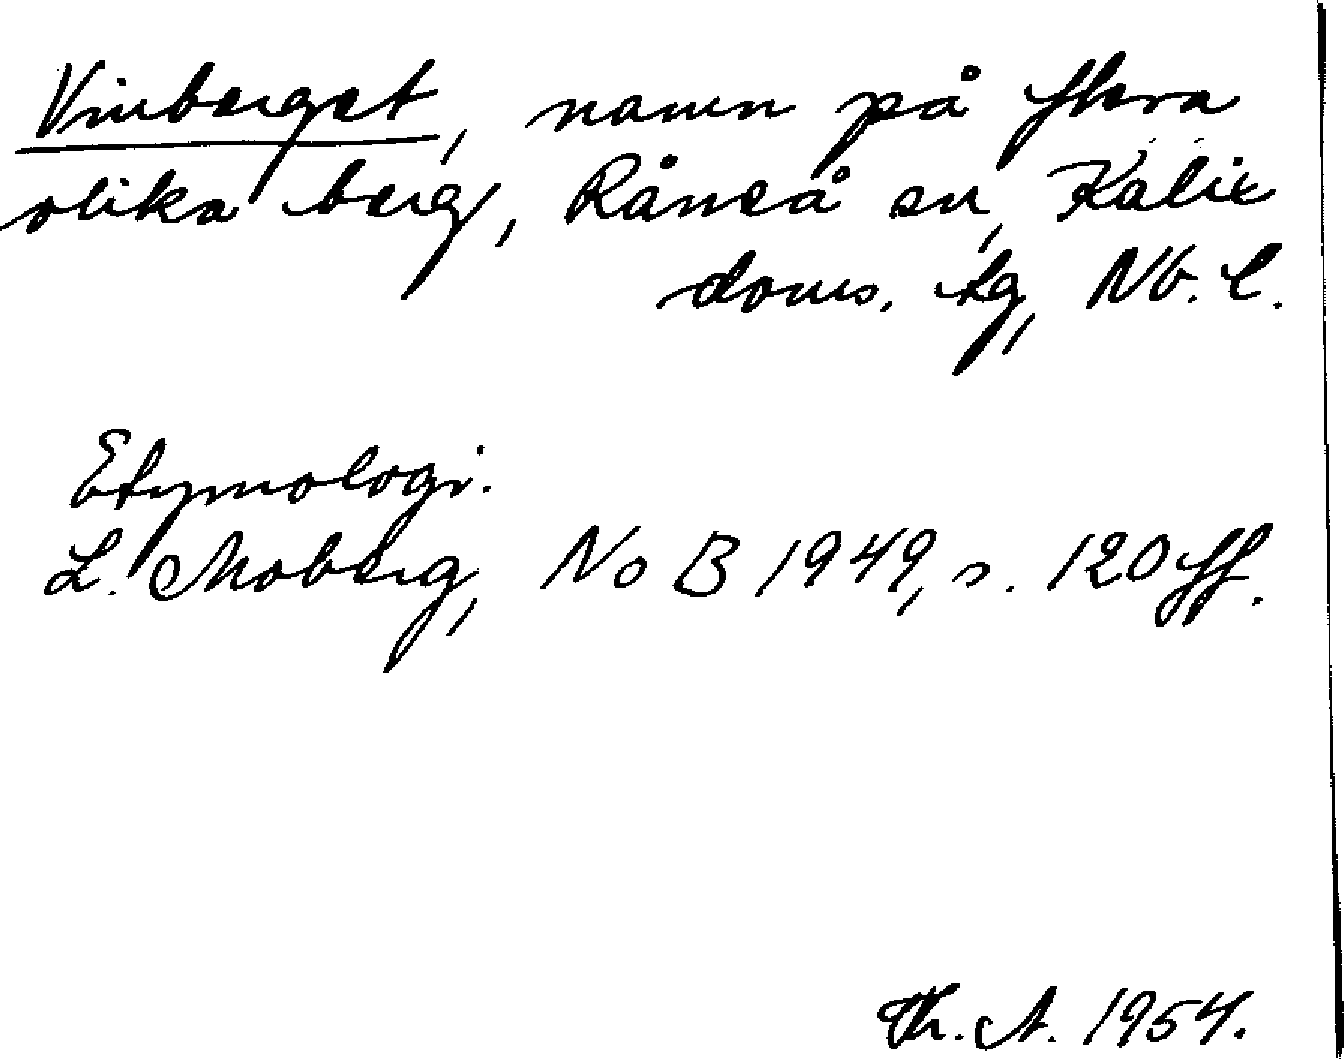 Vinberget, namn på flera
olika berg, Råneå sn, Kalix
doms. tg, Nb. l.
Etymologi.
L. Moberg, NoB 1949, s. 120 ff.
Th. A. 1954.